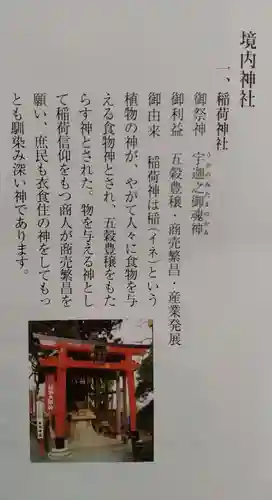 境内神社
一、稲荷神社
御祭神 宇迦之御魂神
うかのみたまのかみ
御利益 五穀豊穣・商売繁昌・産業発展
御由来 稲荷神は稲(イネ)という
植物の神が、やがて人々に食物を与
える食物神とされ、五穀豊穣をもた
らす神とされた。物を与える神とし
て稲荷信仰をもつ商人が商売繁昌を
願い、庶民も衣食住の神をしてもっ
とも馴染み深い神であります。